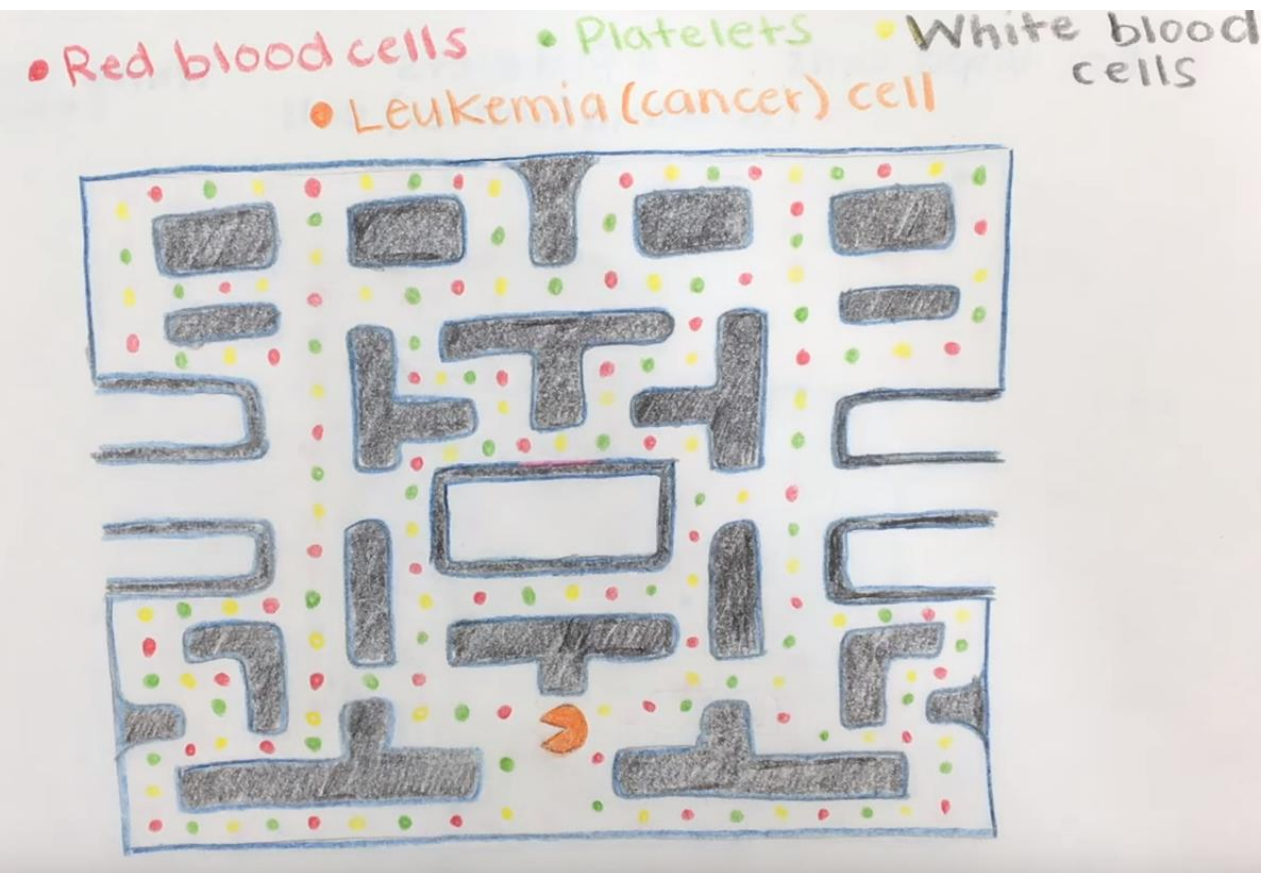 Red blood cells
Platelets
White blood
cells
Leukemia (cancer) cell